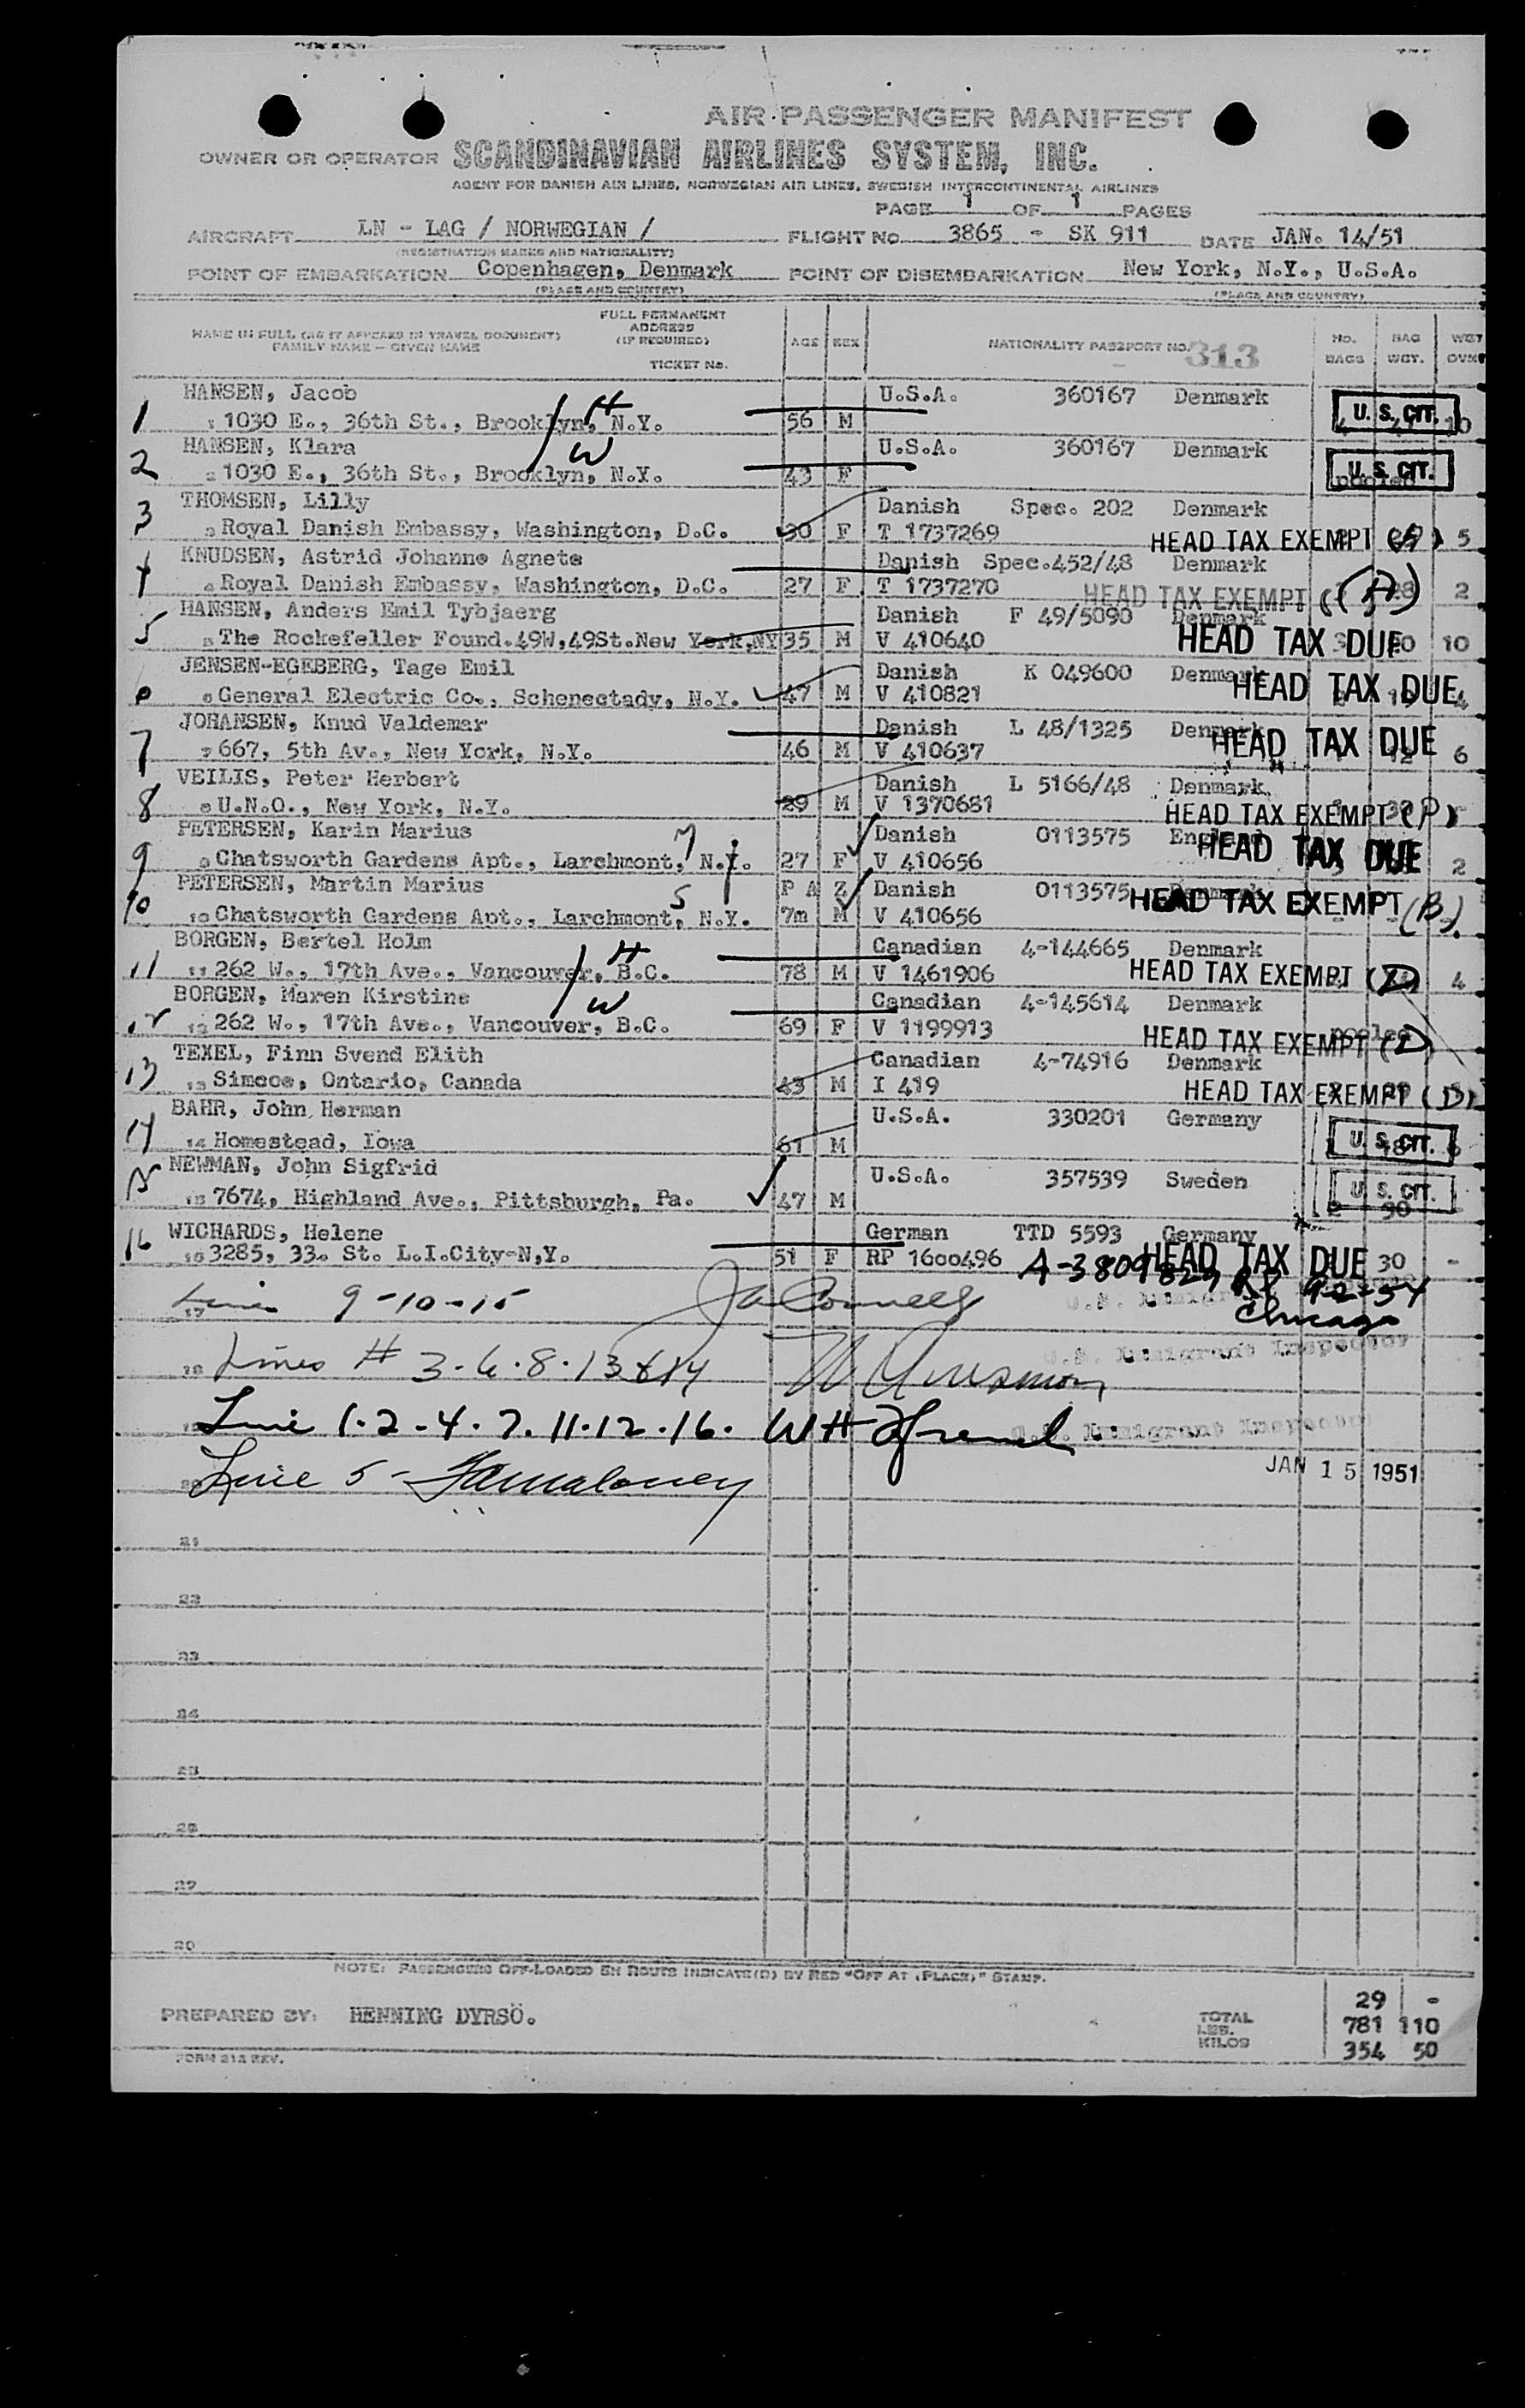 AIR PASSENGER MANIFEST
OWNER OR OPERATOR SCANDINAVIAN AIRLINES SYSTEM, INC.
AGENT FOR DANISH AIR LINES, NORWEGIAN AIR LINES, SWEDISH INTERCONTINENTAL AIRLINES
PAGE 1 OF 1 PAGES
AIRCRAFT LN - LAG / NORWEGIAN / FLIGHT NO. 3865 - SK 911 DATE JAN. 14/51
(REGISTRATION MARKS AND NATIONALITY)
POINT OF EMBARKATION Copenhagen, Denmark POINT OF DISEMBARKATION New York, N.Y., U.S.A.
(PLACE AND COUNTRY) (PLACE AND COUNTRY)
NAME IN FULL (AS IT APPEARS IN TRAVEL DOCUMENT) FAMILY NAME - GIVEN NAME FULL PERMANENT ADDRESS (IF REQUIRED) TICKET No. AGE SEX NATIONALITY PASSPORT NO. 313 No. BAGS BAG WGT. WGT
HANSEN, Jacob U.S.A. 360167 Denmark
1 1 1030 E., 36th St., Brooklyn, N.Y. H 56 M U. S. CIT. 10
HANSEN, Klara U.S.A. 360167 Denmark
2 2 1030 E., 36th St., Brooklyn, N.Y. W 43 F U. S. CIT.
THOMSEN, Lilly Danish Spec. 202 Denmark
3 3 Royal Danish Embassy, Washington, D.C. 30 F T 1737269 HEAD TAX EXEMPT 5
KNUDSEN, Astrid Johanne Agnete Danish Spec.452/48 Denmark
4 4 Royal Danish Embassy, Washington, D.C. 27 F T 1737270 HEAD TAX EXEMPT (A) 2
HANSEN, Anders Emil Tybjaerg Danish F 49/5090 Denmark
5 5 The Rockefeller Found.49W,49St.New York,NY 35 M V 410640 HEAD TAX DUE 10
JENSEN-EGEBERG, Tage Emil Danish K 049600 Denmark
6 6 General Electric Co., Schenectady, N.Y. 47 M V 410821 HEAD TAX DUE 4
JOHANSEN, Knud Valdemar Danish L 48/1325 Denmark
7 7 667, 5th Av., New York, N.Y. 46 M V 410637 HEAD TAX DUE 6
VEILIS, Peter Herbert Danish L 5166/48 Denmark
8 8 U.N.O., New York, N.Y. 29 M V 1370681 HEAD TAX EXEMPT
PETERSEN, Karin Marius Danish 0113575 England
9 9 Chatsworth Gardens Apt., Larchmont, N.Y. M 27 F V 410656 HEAD TAX DUE 2
PETERSEN, Martin Marius P A Z Danish 0113575 Denmark
10 10 Chatsworth Gardens Apt., Larchmont, N.Y. S 7m M V 410656 HEAD TAX EXEMPT (B)
BORGEN, Bertel Holm Canadian 4-144665 Denmark
11 11 262 W., 17th Ave., Vancouver, B.C. H 78 M V 1461906 HEAD TAX EXEMPT (D) 4
BORGEN, Maren Kirstine Canadian 4-145614 Denmark
12 12 262 W., 17th Ave., Vancouver, B.C. W 69 F V 1199913 HEAD TAX EXEMPT (D)
TEXEL, Finn Svend Elith Canadian 4-74916 Denmark
13 13 Simcoe, Ontario, Canada 43 M I 419 HEAD TAX EXEMPT (D)
BAHR, John Herman U.S.A. 330201 Germany
14 14 Homestead, Iowa 61 M U. S. CIT.
NEWMAN, John Sigfrid U.S.A. 357539 Sweden
15 15 7674, Highland Ave., Pittsburgh, Pa. 47 M U. S. CIT. 30
WICHARDS, Helene German TTD 5593 Germany
16 16 3285, 33. St. L.I.City-N,Y. 51 F RP 1600496 HEAD TAX DUE 30 -
A-3809829 9-2-54
Chicago
17 Lines 9-10-15
18 Lines # 3-6-8-13&14 U.S. Immigrant Inspector
19 Line 1-2-4-7-11-12-16. U.S. Immigrant Inspector
20 Line 5-
JAN 15 1951
21
22
23
24
25
26
27
28
NOTE: PASSENGERS OFF-LOADED EN ROUTE INDICATE(D) BY RED "OFF AT (PLACE)" STAMP.
PREPARED BY: HENNING DYRSÖ.
29 -
TOTAL LBS. 781 110
KILOS 354 50
FORM 212 REV.